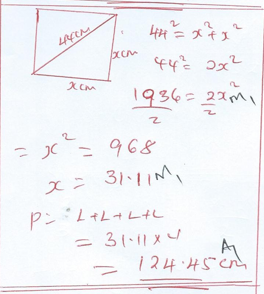 44cm
xcm
xcm
44² = x² + x²
44² = 2x²
1936 = 2x² M₁
2 2
= x² = 968
x = 31.11 M₁
P = L+L+L+L
= 31.11 x 4
= 124.45 cm A₁